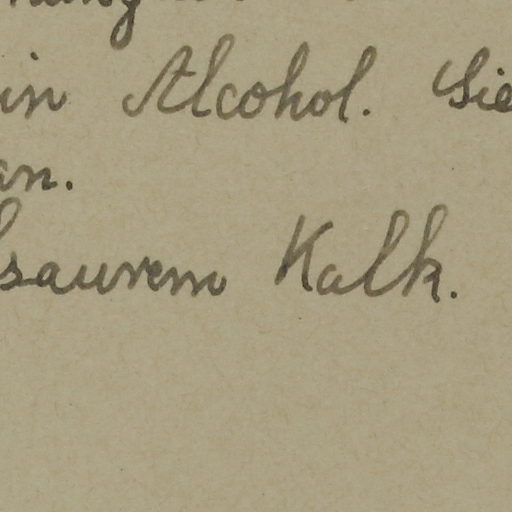 in Alcohol. Sie
an.
saurem Kalk.